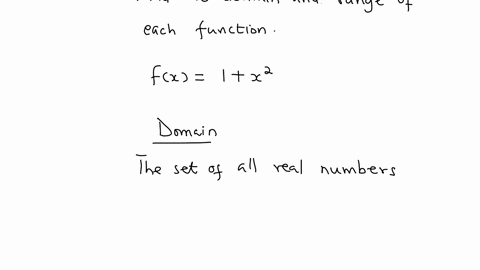 domain and range of
each function.
f(x) = 1 + x²
Domain
The set of all real numbers